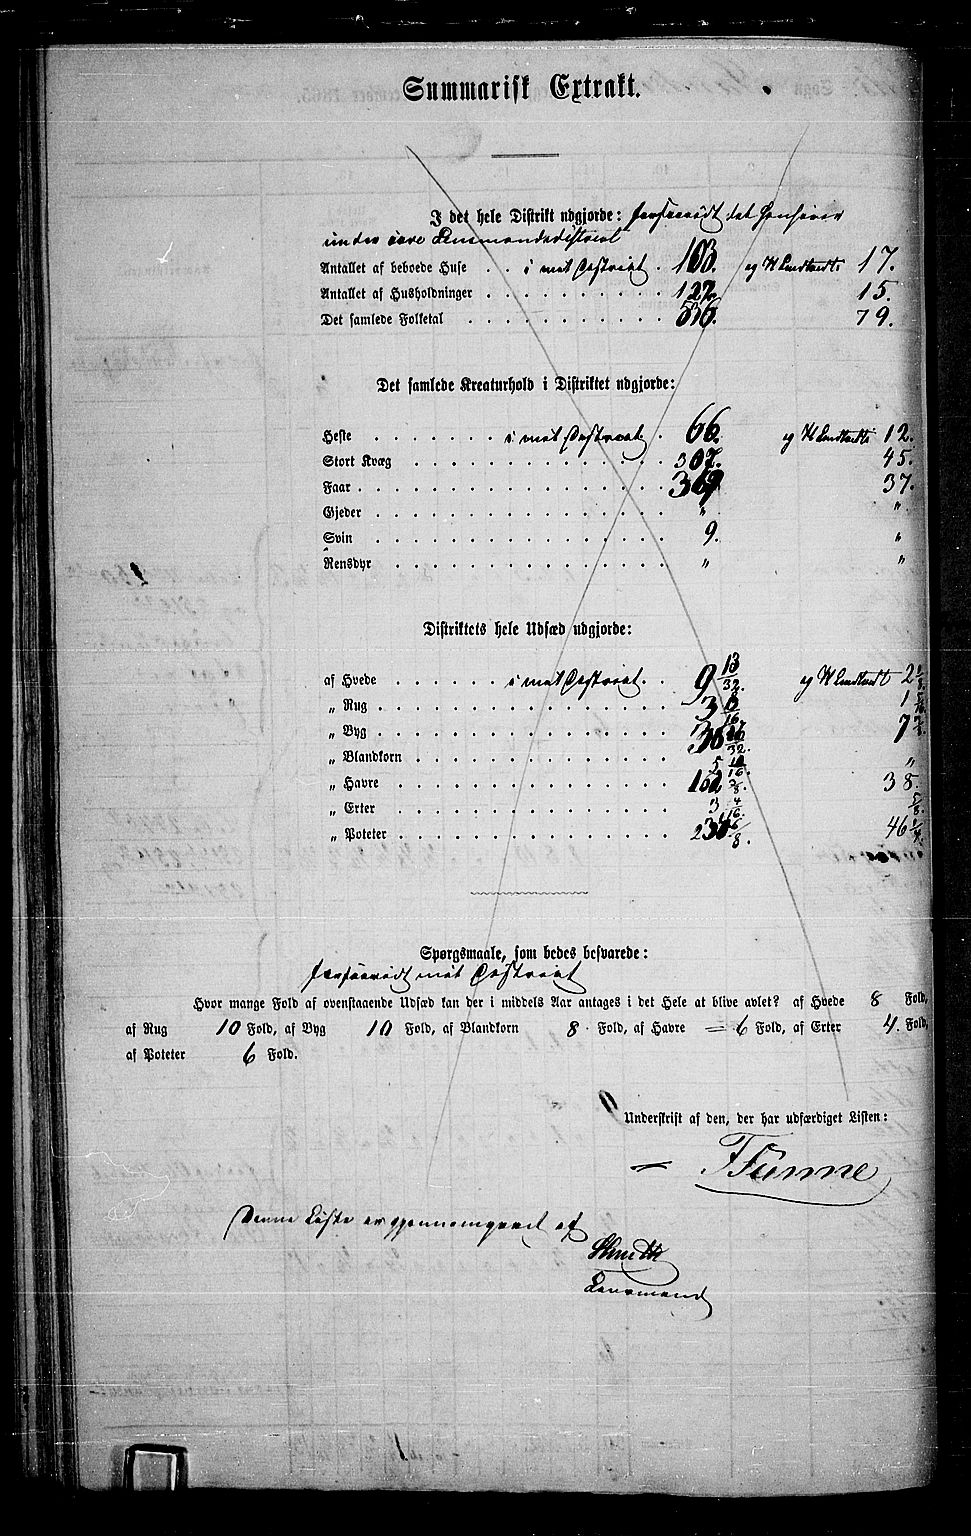 Summarisk Extrakt.
I det hele Distrikt udgjorde: forsaavidt det henhører
under Lensmandsdistrict
Antallet af beboede Huse . . i mit District . 103. og 17.
Antallet af Husholdninger . . . . . . . . . . 122. 15.
Det samlede Folketal . . . . . . . . . . 79.
Det samlede Kreaturhold i Distriktet udgjorde:
Heste . . . . . . i mit District . 66. og 12.
Stort Kvæg . . . . . . . . . . . . . 307. 45.
Faar . . . . . . . . . . . . . . . . 369 37.
Gjeder . . . . . . . . . . . . . . „ „
Svin . . . . . . . . . . . . . . 9. „
Rensdyr . . . . . . . . . . . . . . „ „
Distriktets hele Udsæd udgjorde:
af Hvede . . . . . . i mit District . . 9 13/32. og 2
„ Rug . . . . . . . . . . . . . . 3 1
„ Byg . . . . . . . . . . . . . . 7
„ Blandkorn . . . . . . . . . . . . 5 „
„ Havre . . . . . . . . . . . . . . 38.
„ Erter . . . . . . . . . . . . . . 3 4/16. 5/8.
„ Poteter . . . . . . . . . . . . . 46 1/4.
Spørgsmaale, som bedes besvarede:
forsaavidt mit District
Hvor mange Fold af ovenstaaende Udsæd kan der i middels Aar antages i det Hele at blive avlet? af Hvede 8 Fold,
af Rug 10 Fold, af Byg 10 Fold, af Blandkorn 8 Fold, af Havre = 6 Fold, af Erter 4. Fold,
af Poteter 6 Fold.
Underskrift af den, der har udfærdiget Listen:
Denne Liste er gjennemgaaet af
Lensmand